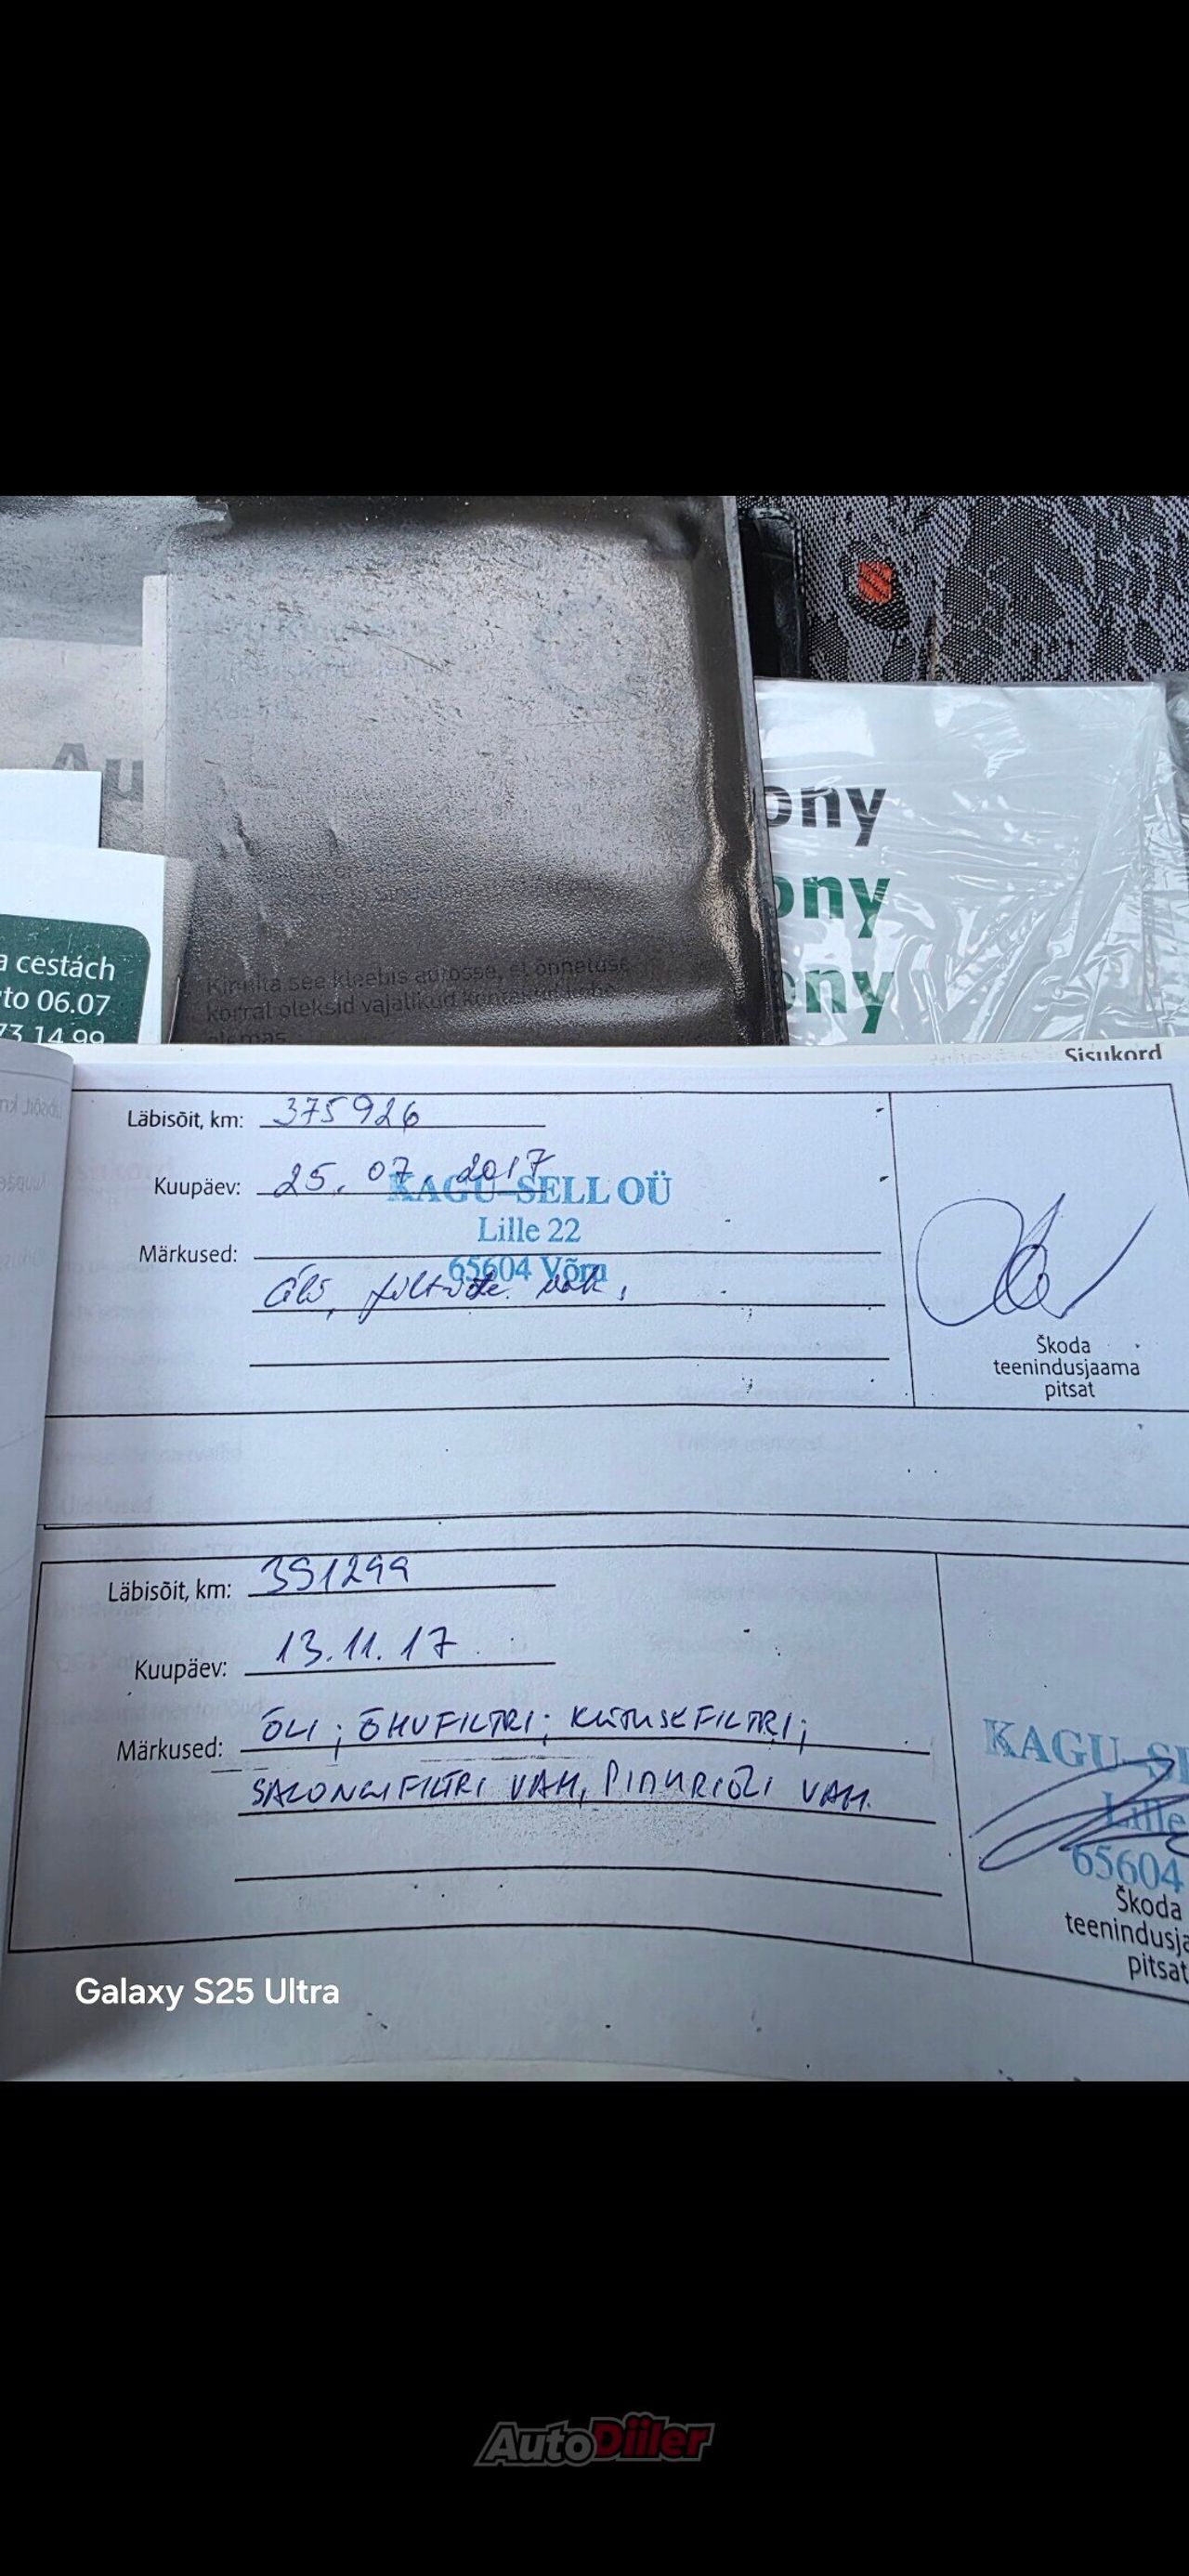 Au
ony
ony
ony
a cestách
to 06.07
73 14 99
Kinnita see kleebis autosse, et õnnetuse
korral oleksid vajalikud kontaktid kohe
olemas
Sisukord
Läbisõit, km: 375926
Kuupäev: 25.07.2017
KAGU-SELL OÜ
Lille 22
65604 Võru
Märkused:
Õli, filtrite vah,
Škoda
teenindusjaama
pitsat
Läbisõit, km: 391299
Kuupäev: 13.11.17
Märkused: ÕLI; ÕHUFILTRI; KÜTUSEFILTRI;
SALONGIFILTRI VAH, PIDURIÕLI VAH.
KAGU-SE
Lille
65604
Škoda
teenindusja
pitsat
Galaxy S25 Ultra
AutoDiiler